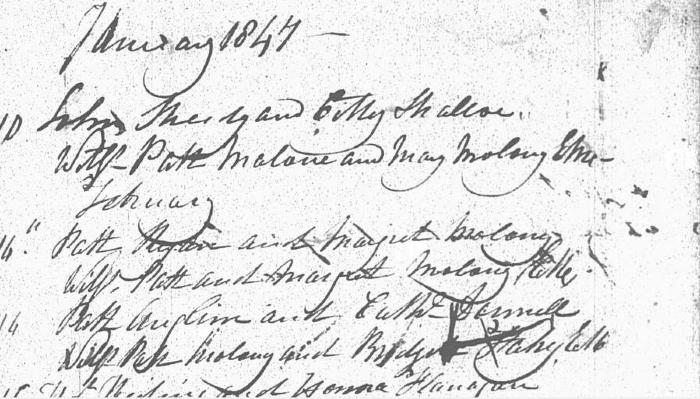 January 1847 —
10 John Sheedy and Kitty Shalloe.
Witss Patt Malone and Mary Molony
February
14" Patt and Margret Molony
Witss. Patt and Margret Molony
14 Patt Anglim and Cathe
Witss Patt Molony and Bridget
and Honora Flanagan